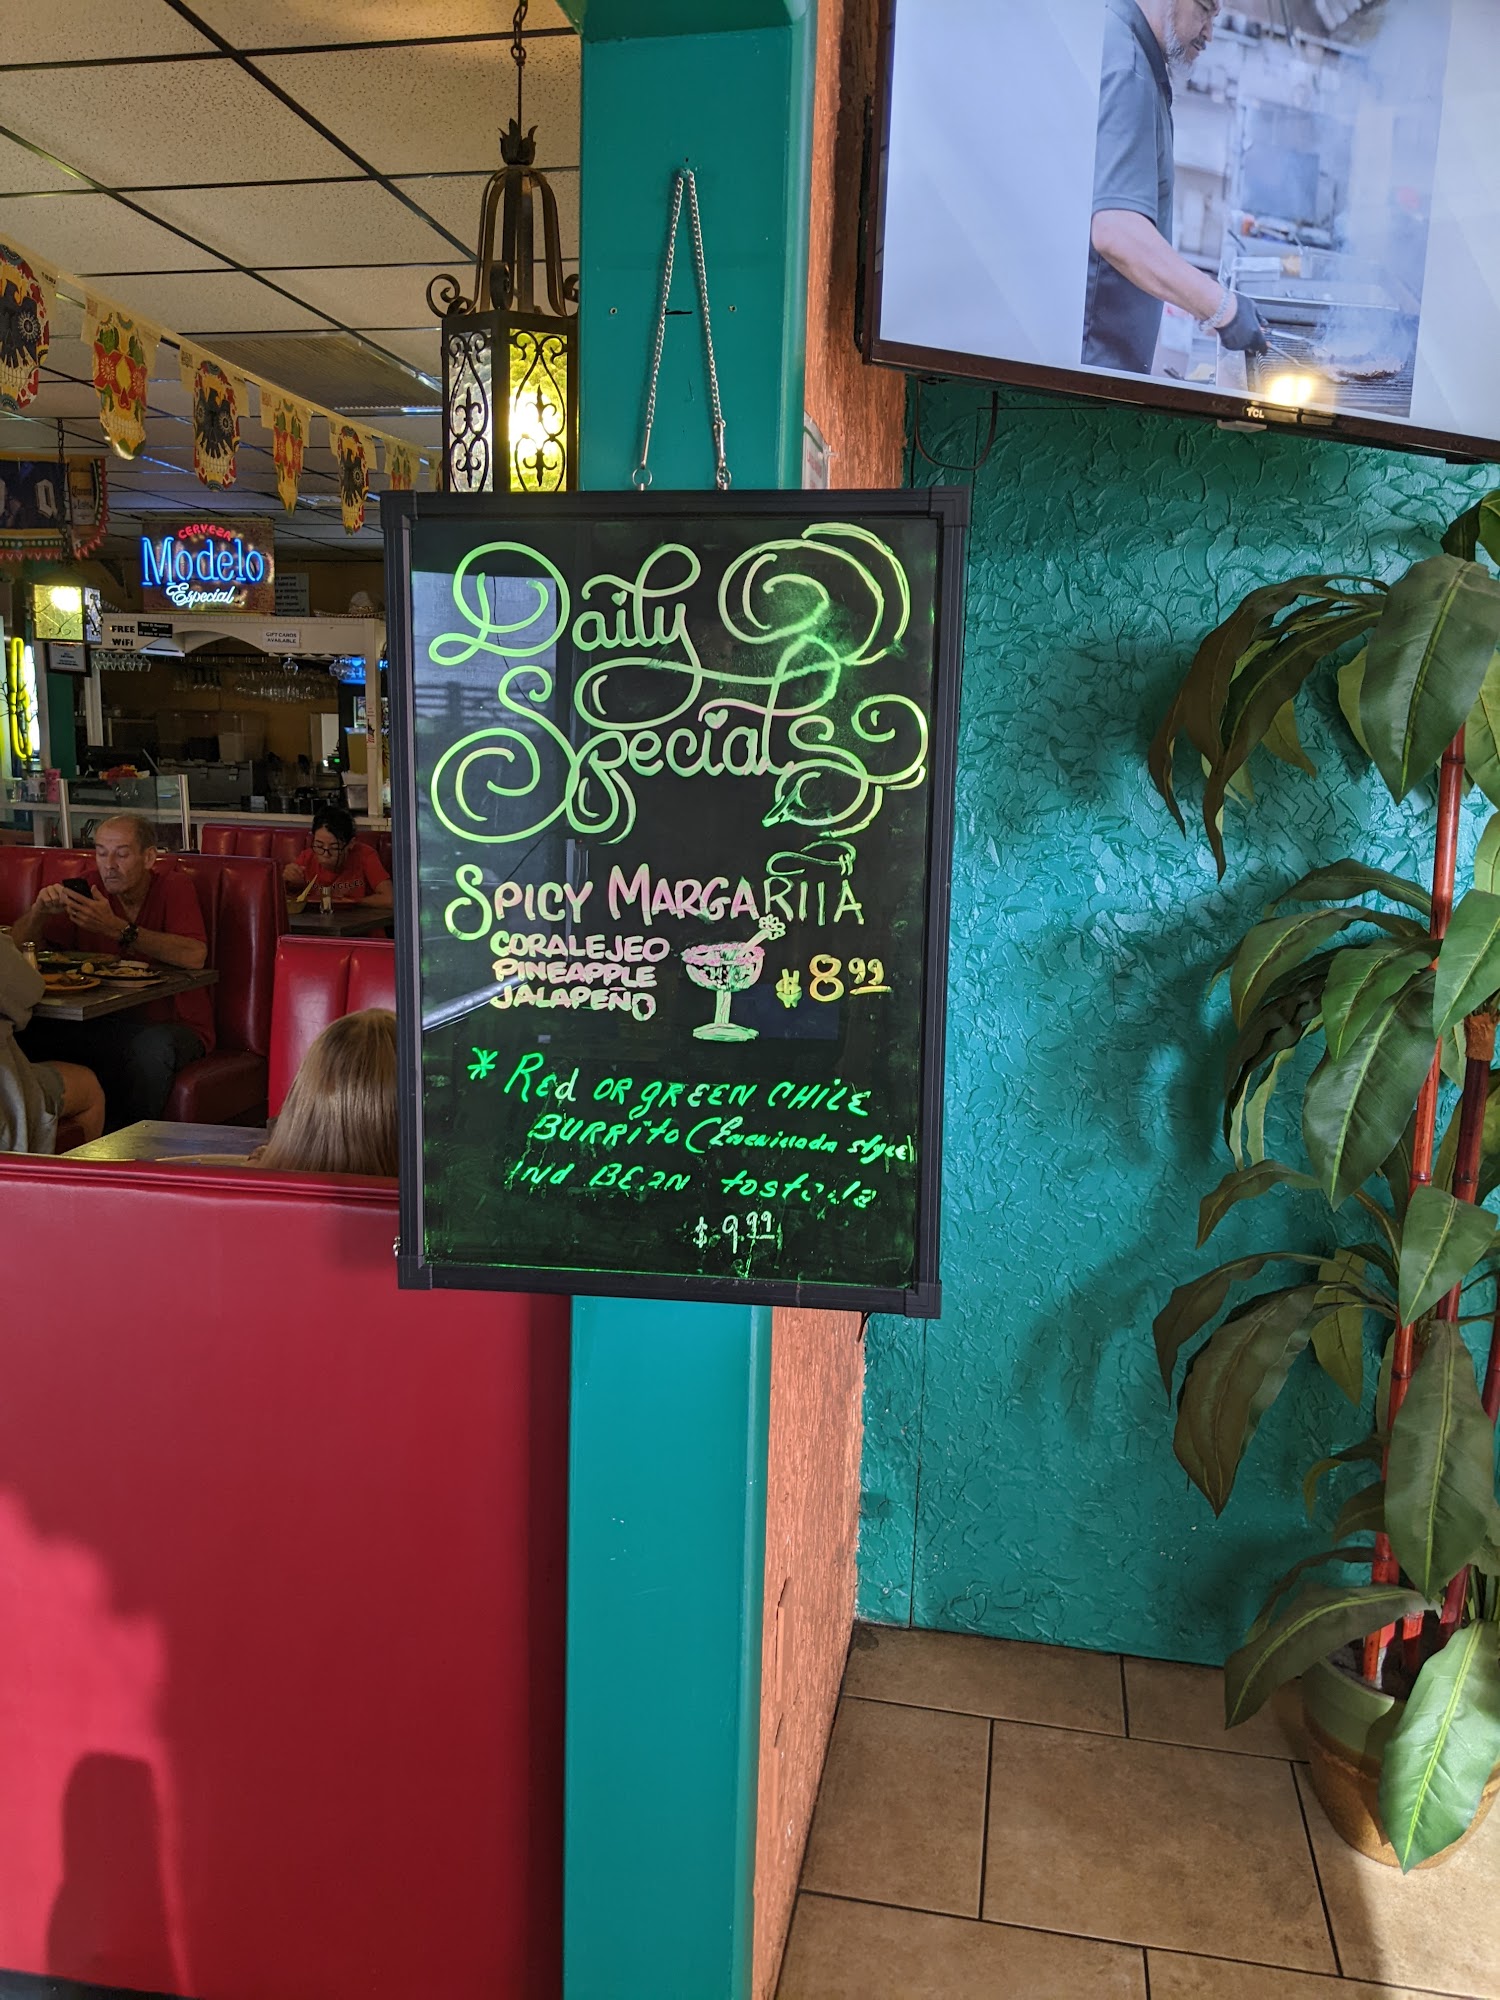 CERVEZA
Modelo
Especial
FREE
WiFi
GIFT CARDS
AVAILABLE
TCL
Daily
Specials
SPICY MARGARITA
CORALEJEO
PINEAPPLE
JALAPEÑO
$8.99
* Red OR GREEN CHILE
BURRITO (Enchilada style)
And BEAN tostada
$9.99